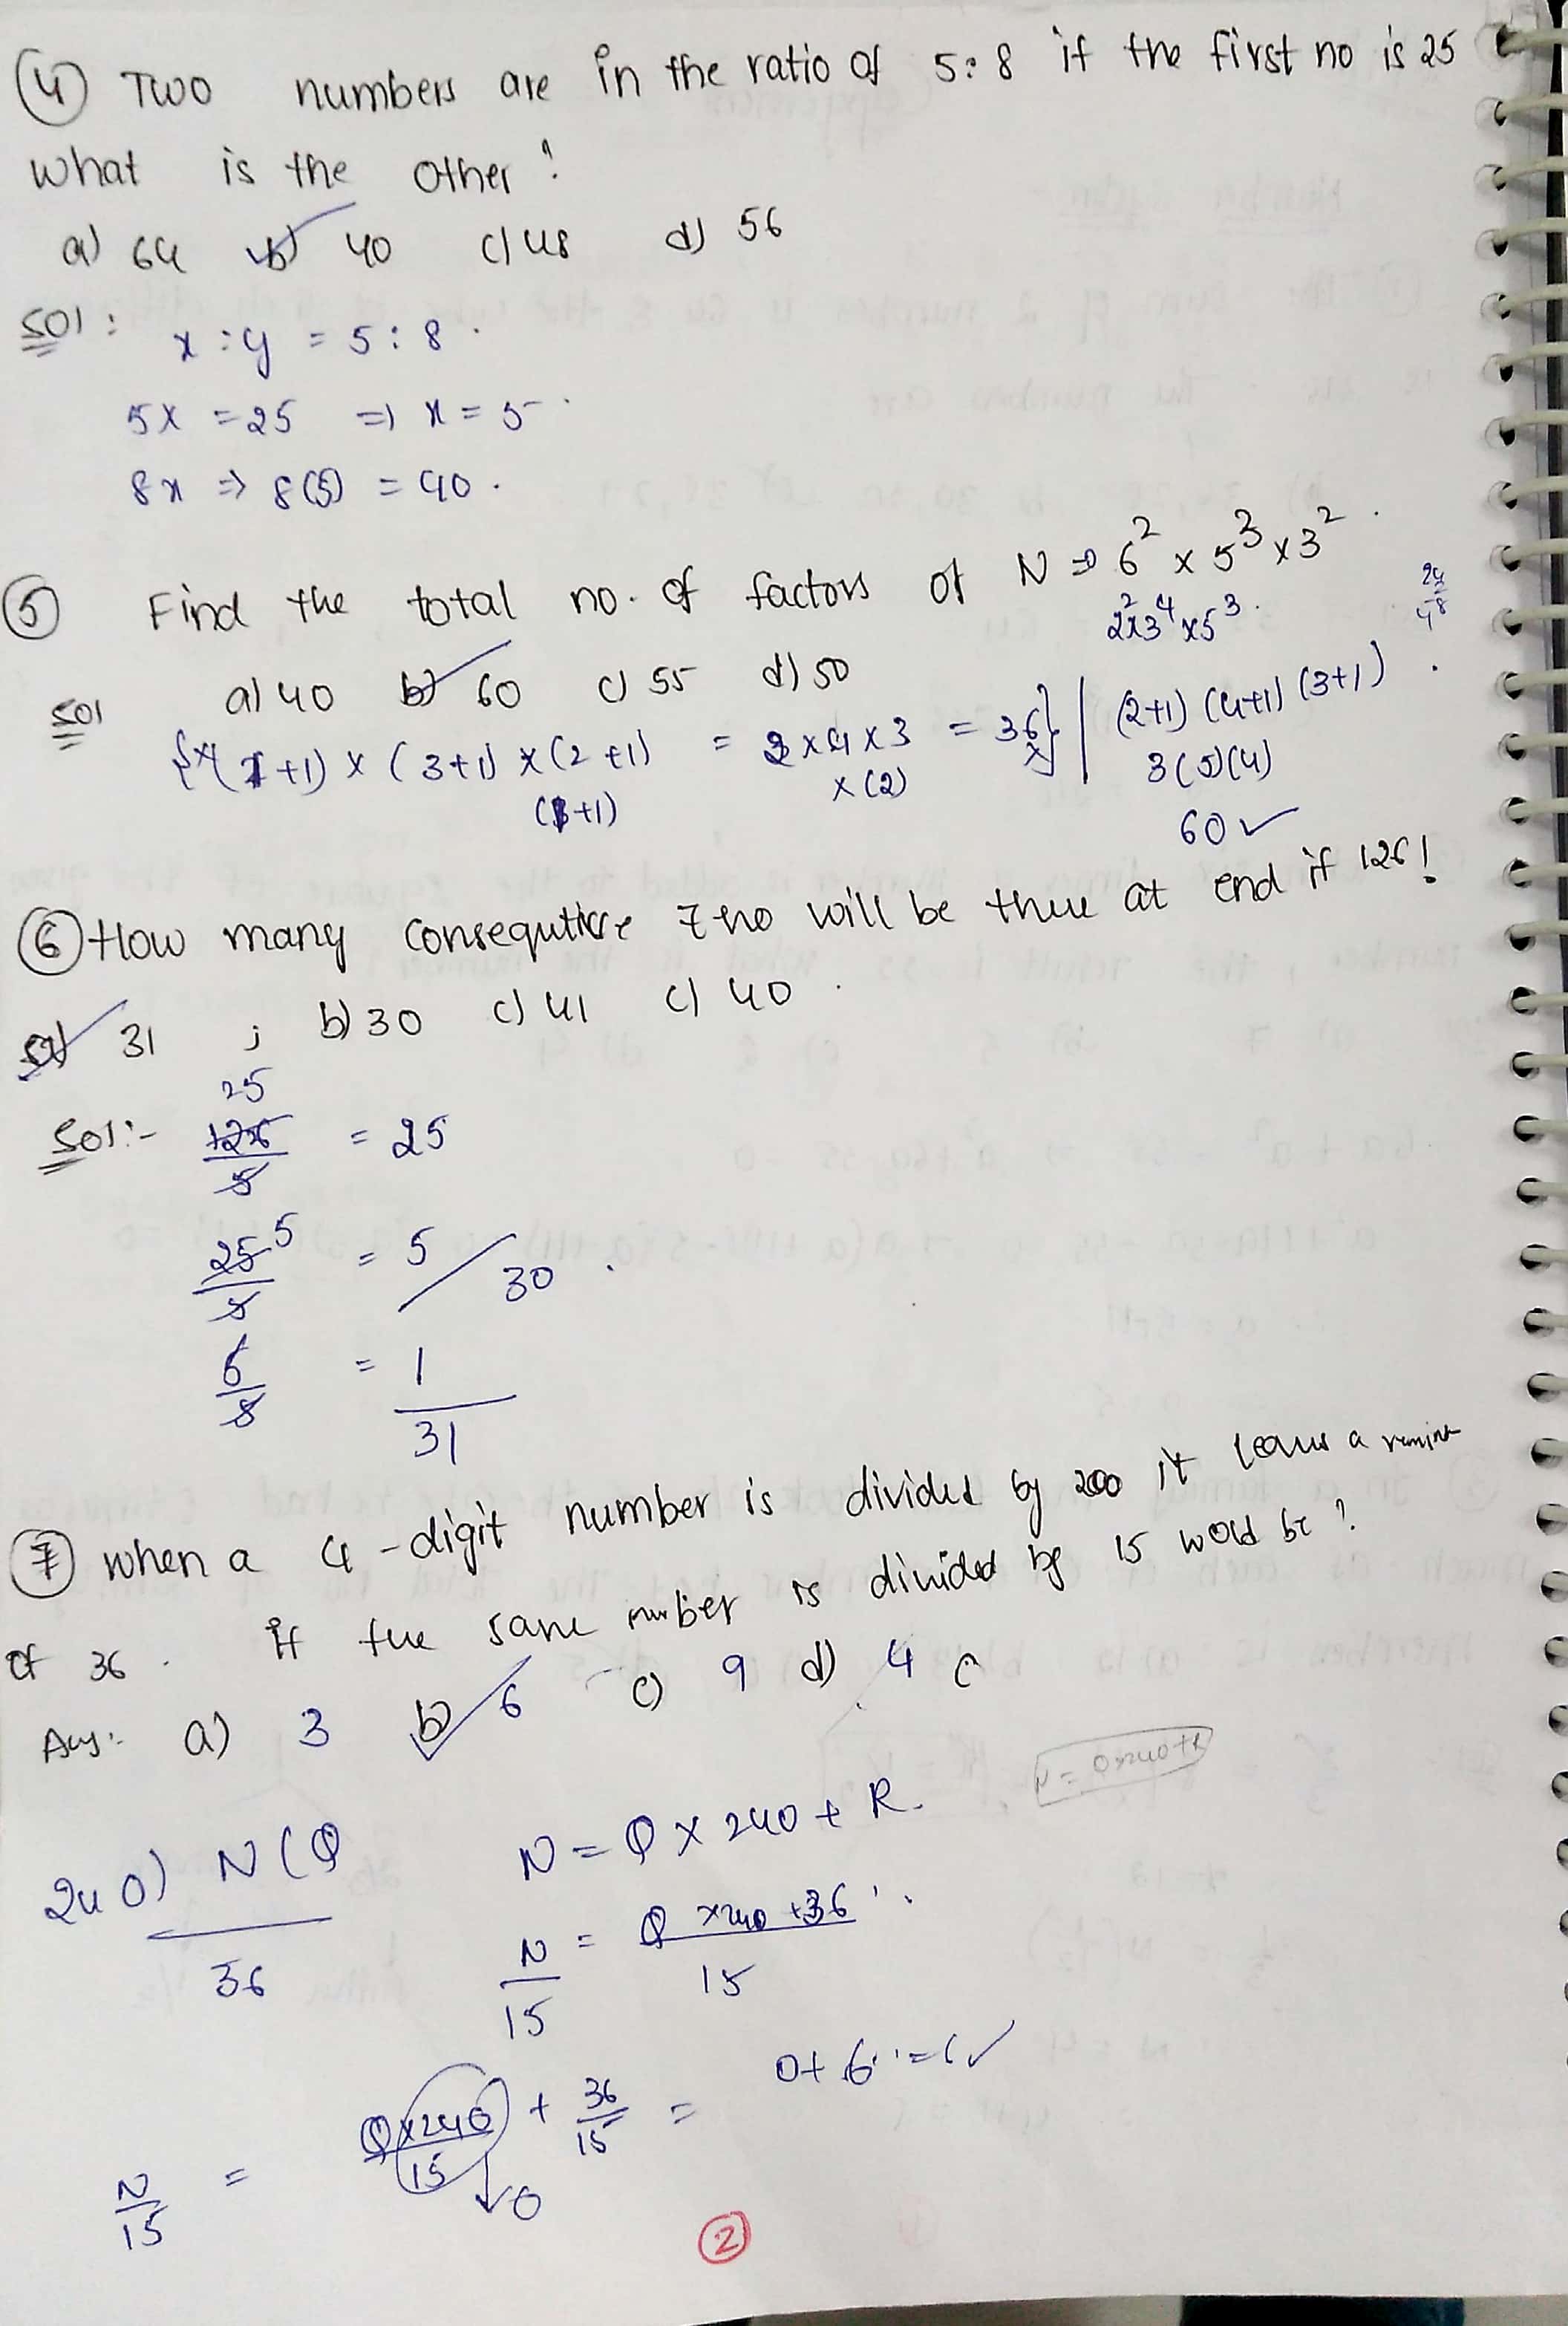 (4) Two numbers are in the ratio of 5:8 if the first no is 25
what is the other?
a) 64 b) 40 c) 48 d) 56
Sol: x : y = 5 : 8.
5x = 25 => x = 5.
8x => 8(5) = 40.
(5) Find the total no. of factors of N => 6² x 5³ x 3².
2² x 3⁴ x 5³.
24
48
a) 40 b) 60 c) 55 d) 50
Sol
(1+1) x (3+1) x (2+1) = 2 x 4 x 3 = 36 | (2+1) (4+1) (3+1).
(1+1) x (2) 3(5)(4)
60 ✓
(6) How many consequtive zero will be there at end if 126!
a) 31 ; b) 30 c) 41 c) 40.
25
Sol:- 126/5 = 25
25/5 5 = 5 / 30.
5/5 = 1
31
(7) When a 4-digit number is divided by 200 it leaves a
of 36. if the same number is divided by 15 would be?
Ans: a) 3 b) 6 c) 9 d) 4
N = Qx240+R
240) N (Q N = Q x 240 + R.
36 N/15 = Q x240 +36 / 15
N/15 = Qx240/15 + 36/15 = 0 + 6 = 6 ✓
0
2